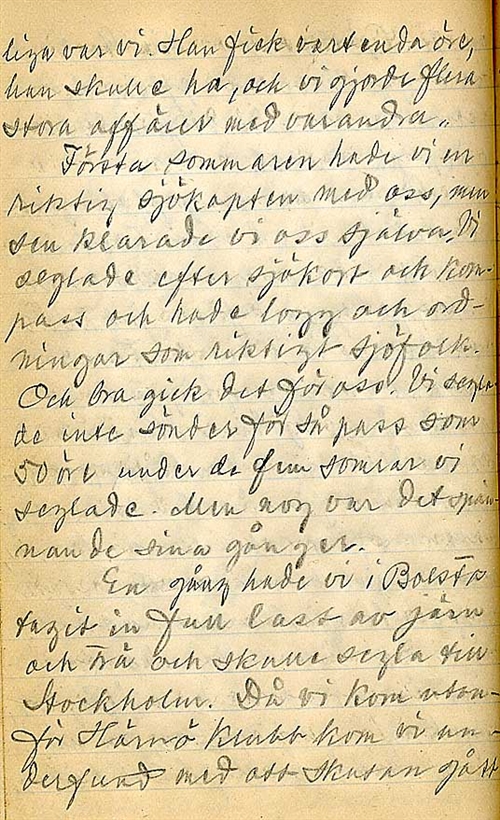 liga var vi. Han fick vartenda öre,
han skulle ha, och vi gjorde flera
stora affärer med varandra.
Första sommaren hade vi en
riktig sjökapten med oss, men
sen klarade vi oss själva. Vi
seglade efter sjökort och kom-
pass och hade logg och ord-
ningar som riktigt sjöfolk.
Och bra gick det för oss. Vi segla
de inte sönder för så pass som
50 öre under de fem somrar vi
seglade. Men nog var det spän-
nande sina gånger.
En gång hade vi i Bolsta
tagit in full last av järn
och trä och skulle segla till
Stockholm. Då vi kom utan-
för Härnö klubb kom vi un-
derfund med att skutan gått